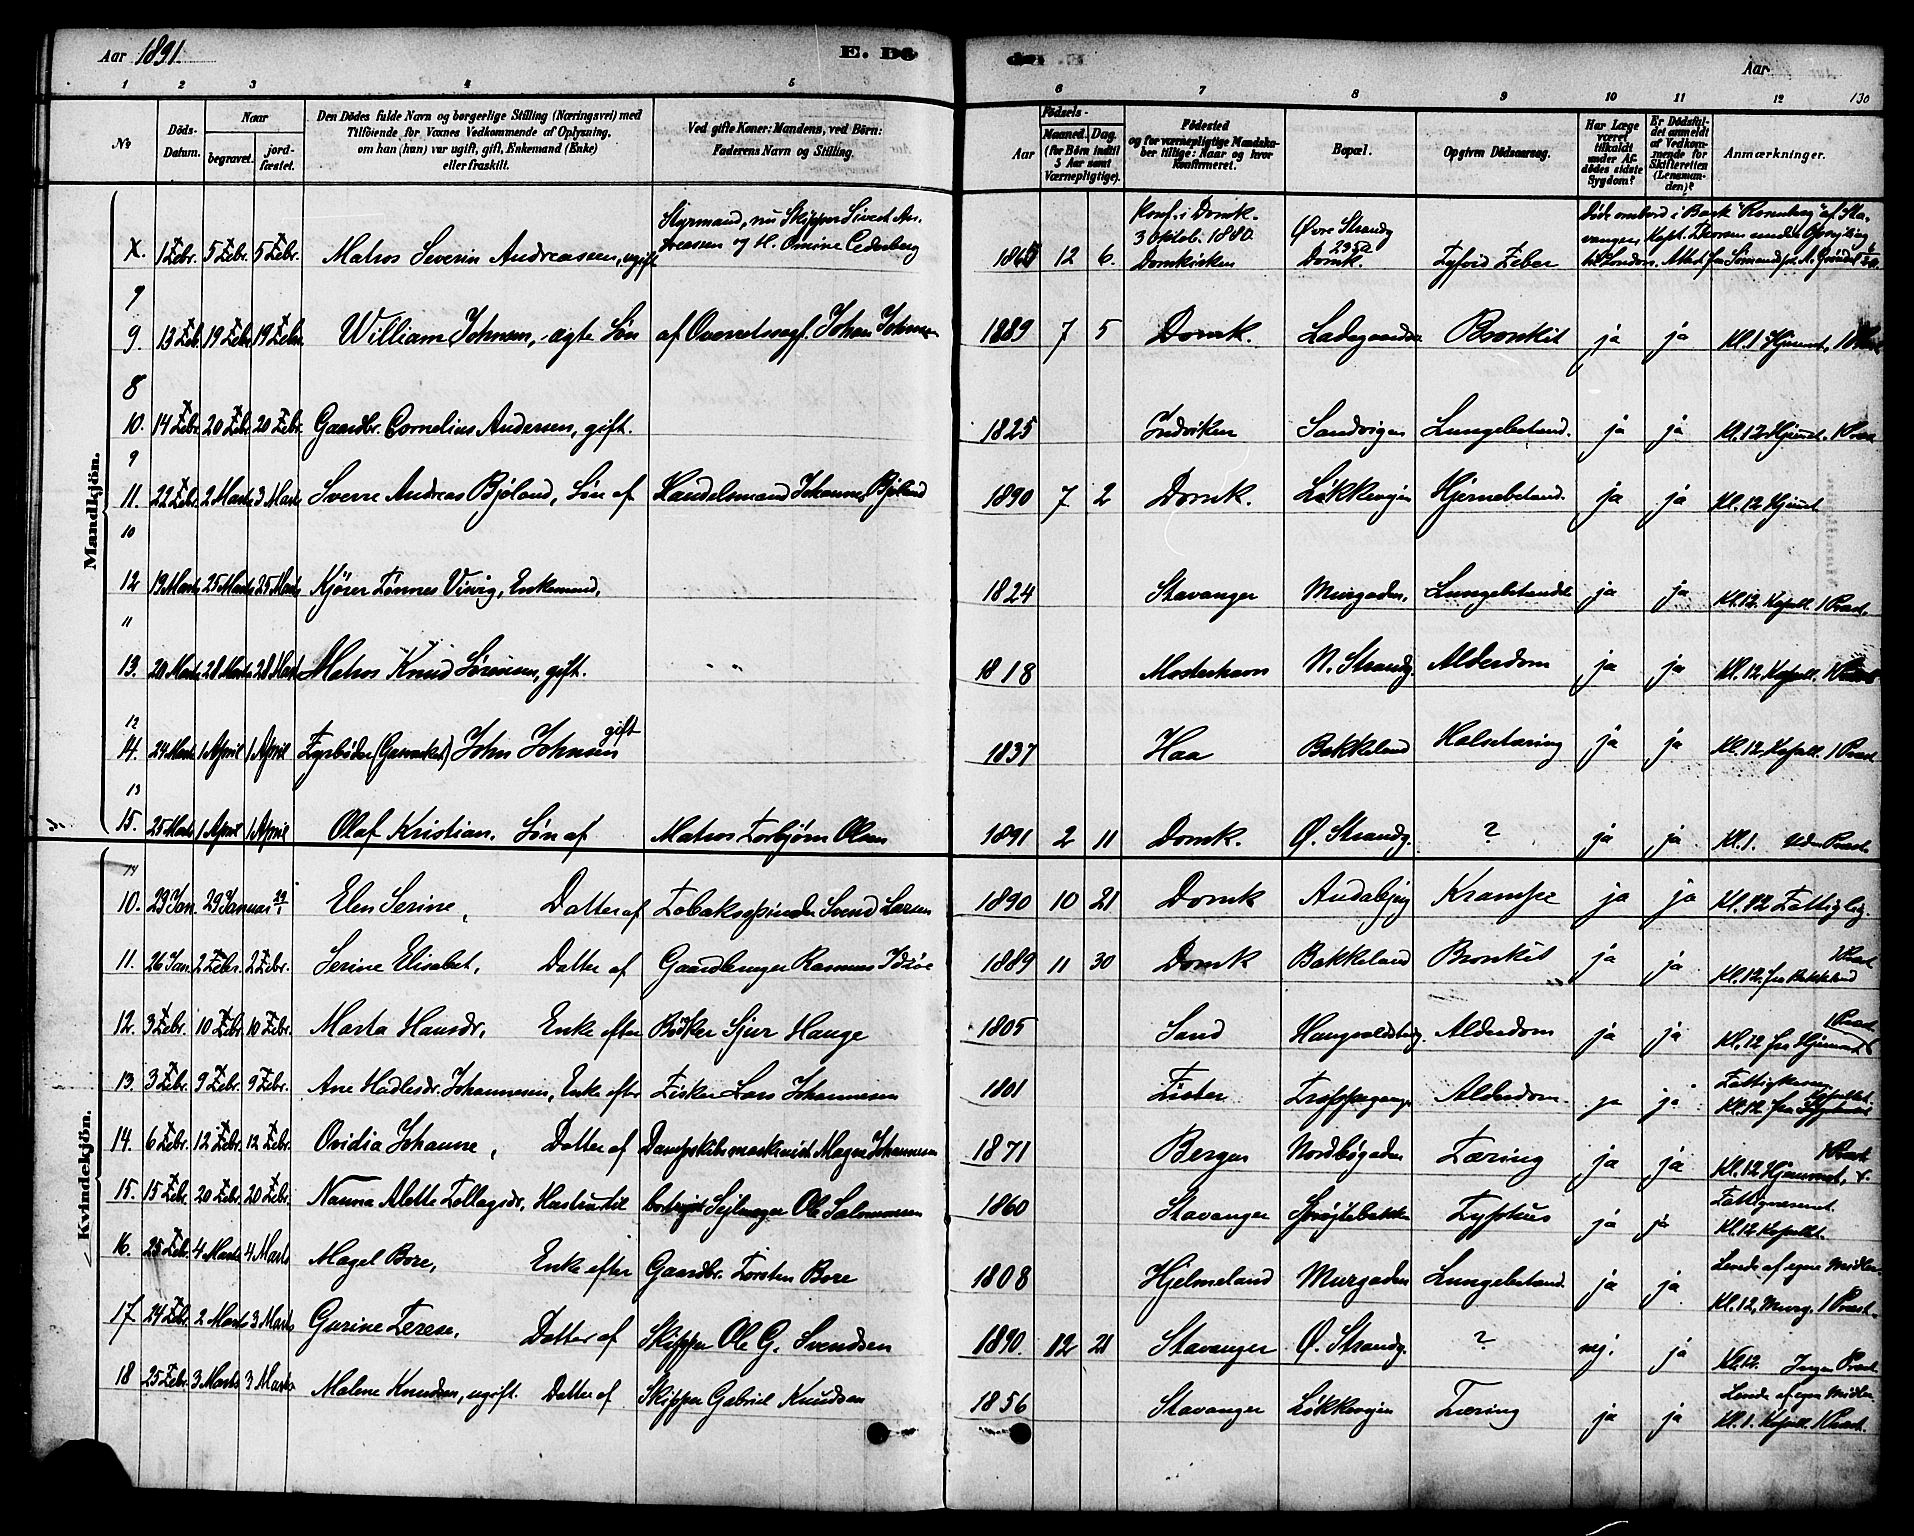 Aar 1891. E. Dö de. Aar 130
1 2 3 4 5 6 7 8 9 10 11 12
No
Döds-Datum.
Naar
begravet. jordfæstet.
Den Dödes fulde Navn og borgerlige Stilling (Næringsvei) med
Tilföiende for Voxnes Vedkommende af Oplysning,
om han (hun) var ugift, gift, Enkemand (Enke)
eller fraskilt.
Ved gifte Koner: Mandens, ved Börn:
Faderens Navn og Stilling.
Födsels-
Aar Maaned. Dag.
(for Börn indtil 5 Aar samt Værnepligtige).
Födested
og for værnepligtige Mandskaber tillige: Naar og hvor Konfirmeret.
Bopæl.
Opgiven Dödsaarsag.
Har Læge været tilkaldt under Afdödes sidste Sygdom?
Er Dödsfaldet anmeldt af Vedkommende for Skifteretten (Lensmanden)?
Anmærkninger.
Mandkjön.
Styrmand, nu Skipper Sivert An-
X. 1 Febr. 5 Febr. 5 Febr. Matros Severin Andreassen, ugift dreassen og H. Omine Cederberg 1865 12 6. Konf. i Domk. 3 Oktob. 1880. Domkirken Øvre Strandg Domk. Tyfoid Feber Død ombord i Bark "Rosenhag" af Stavanger Kapt.
9
9. 13 Feb. 19 Febr. 19 Febr. William Johnsen, ægte Søn af Overretssagf. Johan Johnsen 1889 7 5 Domk. Ladegaards Bronkit ja ja Kl. 1 Hjemmet,
8
10. 14 Febr. 20 Febr. 20 Febr. Gaardbr. Cornelius Andersen, gift. 1825 Indviken Sandvigen Lungebetænd. ja ja Kl. 12 Hjemmet. 1 Præst
9
11. 22 Febr. 2 Marts 3 Marts Sverre Andreas Bjeland, Søn af Handelsmand Johannes Bjeland 1890 7 2 Domk. Løkkevejen Hjernebetænd. ja ja Kl. 12 Hjemmet
10
12 19 Marts 25 Marts 25 Marts Kjører Tønnes Visvig, Enkemand, 1824 Stavanger Murgaden. Lungebetændl. ja ja Kl. 12. Kapell. 1 Præst.
11
13. 20 Marts 28 Marts 28 Marts Matros Knud Sørensen, gift. " 1818 Mosterhavn N. Strandg. Alderdom ja ja Kl. 12 Kapell. 1 Præst
12
14. 24 Marts 1 April 1 April Fyrbøder (Gasværket) John Johnsen gift 1837 Haa Bakkeland Halstæring ja ja Kl. 12 Kapell. 1 Præst.
13
15. 25 Marts 1 April 1 April Olaf Kristian. Søn af Matros Torbjørn Olsen 1891 2 11 Domk. Ø. Strandg. ? ja ja Kl. 1. Uden Præst.
Kvindekjön.
14
10. 23 Jan 29 Januar 29/1 Elen Serine, Datter af Tobaksspinder Svend Larsen 1890 10 21 Domk Andabjerg Krampe ja ja Kl. 12 Fattiglig.
11. 26 Jan. 2 Febr. 2 Febr. Serine Elisabet, Datter af Gaardbruger Rasmus Idsøe 1889 11 30 Domk Bakkeland Bronkit ja ja 1 Præst Kl. 12. fra Bakkeland
12. 3 Febr. 10 Febr. 10 Febr. Marta Hansdr, Enke efter Bødker Sjur Hauge 1805 Sand Haugvaldstadg. Alderdom ja ja 1 Præst Kl. 12 fra Hjemmet
13. 3 Febr. 9 Febr. 9 Febr. Ane Hadlesdr. Johannesen, Enke efter Fisker Lars Johannesen 1801 Lister Trappegange Alderdom. ja ja Fattigkassen Kapellet. Kl. 12 fra Sygehuset
14. 6 Febr. 12 Febr. 12 Febr. Ovidia Johanne, Datter af Dampskibsmaskinist Magne Johannesen 1871 Bergen Nordbøgaden Tæring ja ja 1 Præst Kl. 12 Hjemmet,
15. 15 Febr. 20 Febr. 20 Febr. Nanna Alette Tollagsdr, Hustru til bortrejst Sejlmager Ole Salomonsen 1860 Stavanger Sprøjtebakken Typhus ja ja Fattigvæsenet. Kl. 12 Kapellet.
16. 25 Feb. 4 Marts 4 Marts Magel Bore, Enke efter Gaardbr. Torsten Bore 1808 Hjelmeland Murgaden Lungebetænd. ja ja Levede af egne Midler Kl. 12, Murg. 1 Præst.
17 24 Febr. 2 Marts 3 Marts Gurine Terese. Datter af Skipper Ole G. Svendsen 1890. 12 21 Stavanger Ø. Strandg. ? nej. ja Kl. 12. Ingen Præst
18 25 Febr. 3 Marts 3 Marts Malene Knudsen, ugift. Datter af Skipper Gabriel Knudsen 1856 Stavanger Løkkevejen Tæring ja ja Levede af egne Midler Kl. 1. Kapell. 1 Præst.